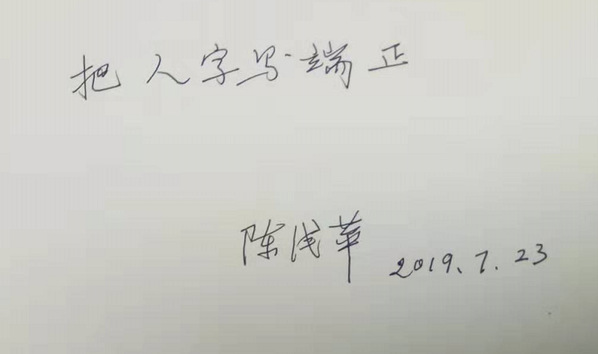 把人字写端正
陈浅华
2019.7.23